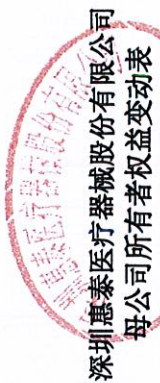 深圳惠泰医疗器械股份有限公司
母公司所有者权益变动表
深圳惠泰医疗器械股份有限公司